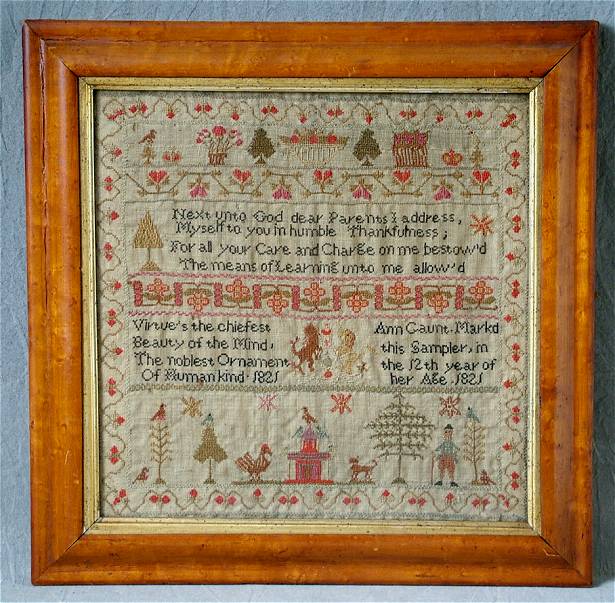 Next unto God dear Parents I address,
Myself to you in humble Thankfulness;
For all your Care and Charge on me bestow'd
The means of Learning unto me allow'd
Virtue's the chiefest
Beauty of the Mind,
The noblest Ornament
Of Humankind. 1821
Ann Gaunt. Mark'd
this Sampler, in
the 12th year of
her Age. 1821